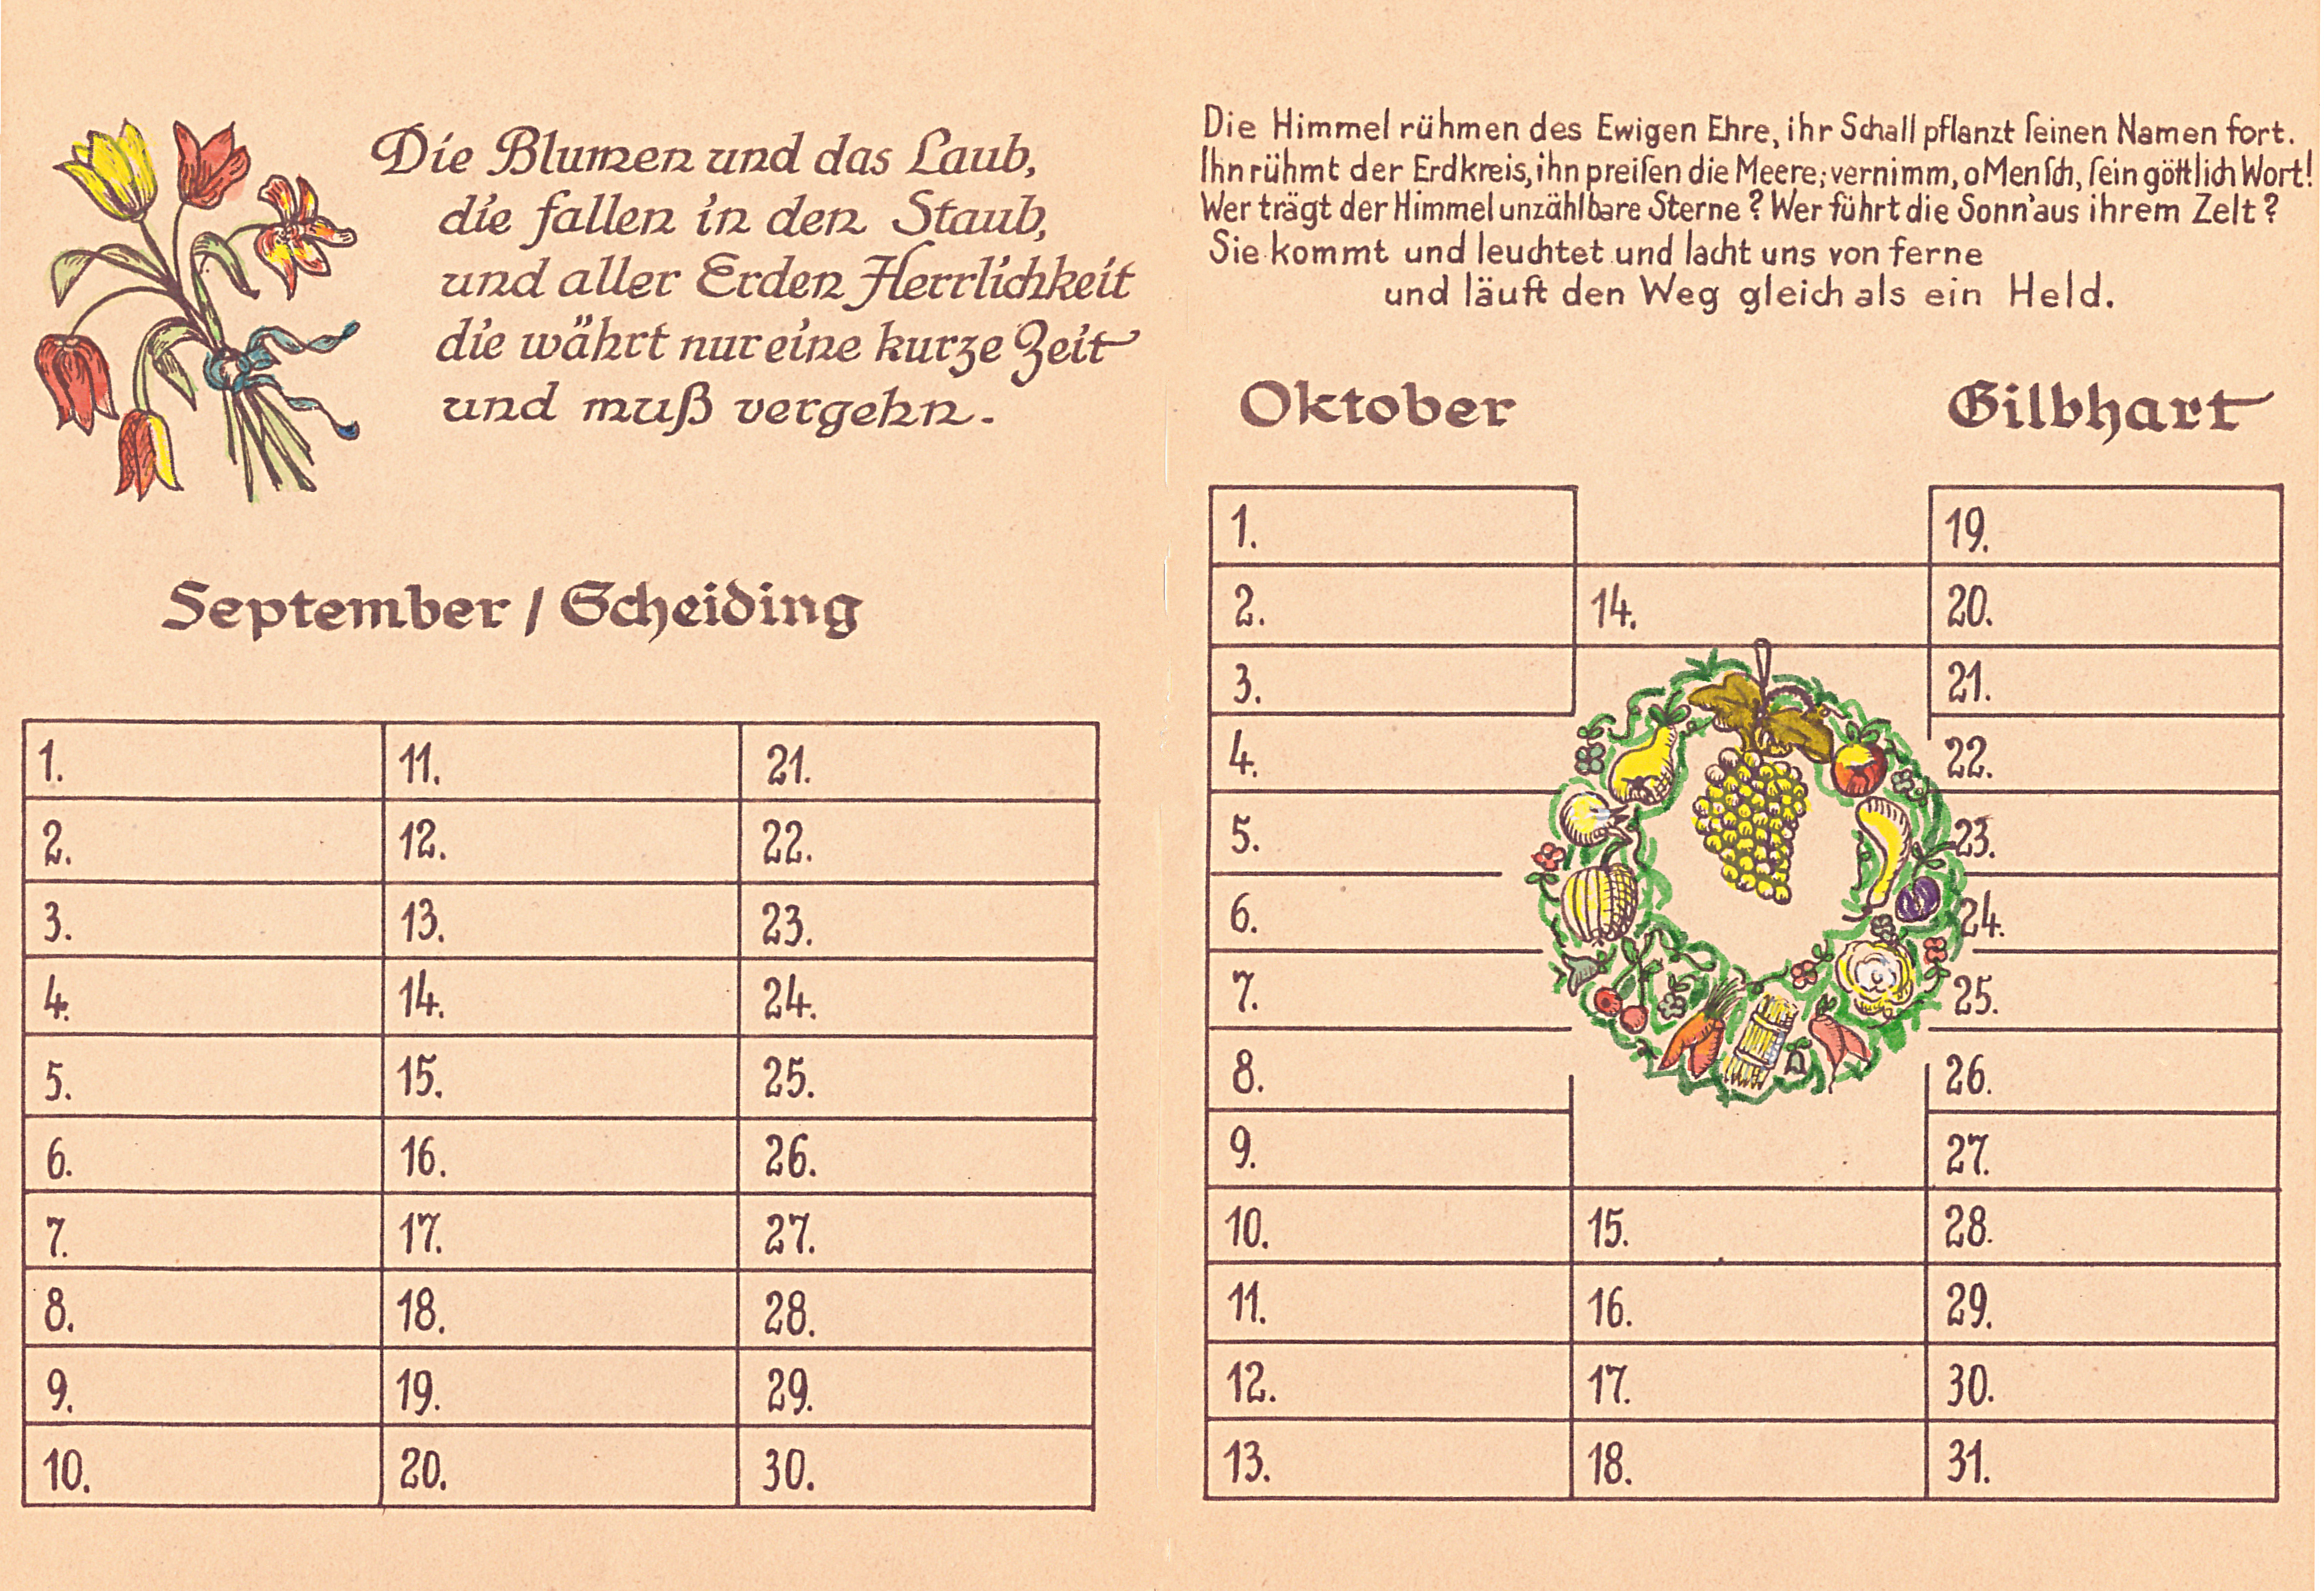 Die Blumen und das Laub,
die fallen in den Staub,
und aller Erden Herrlichkeit
die währt nur eine kurze Zeit
und muß vergehn.
September / Scheiding
1.
2.
3.
4.
5.
6.
7.
8.
9.
10.
11.
12.
13.
14.
15.
16.
17.
18.
19.
20.
21.
22.
23.
24.
25.
26.
27.
28.
29.
30.
Die Himmel rühmen des Ewigen Ehre, ihr Schall pflanzt ſeinen Namen fort.
Ihn rühmt der Erdkreis, ihn preiſen die Meere; vernimm, o Menſch, ſein göttlich Wort!
Wer trägt der Himmel unzählbare Sterne? Wer führt die Sonn' aus ihrem Zelt?
Sie kommt und leuchtet und lacht uns von ferne
und läuft den Weg gleich als ein Held.
Oktober Gilbhart
1.
2.
3.
4.
5.
6.
7.
8.
9.
10.
11.
12.
13.
14.
15.
16.
17.
18.
19.
20.
21.
22.
23.
24.
25.
26.
27.
28.
29.
30.
31.